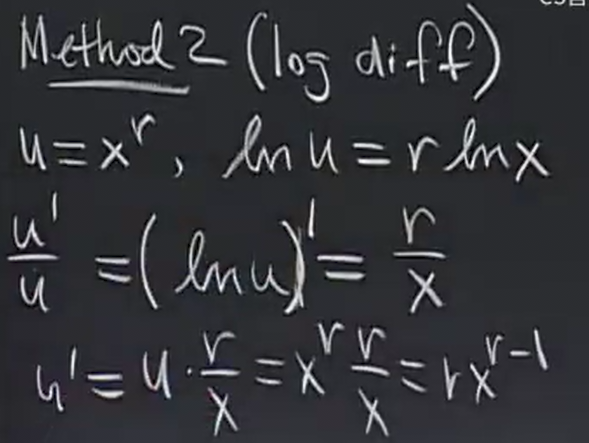 Method 2 (log diff)
u = x^r, ln u = r ln x
u'/u = (ln u)' = r/x
u' = u · r/x = x^r r/x = r x^(r-1)